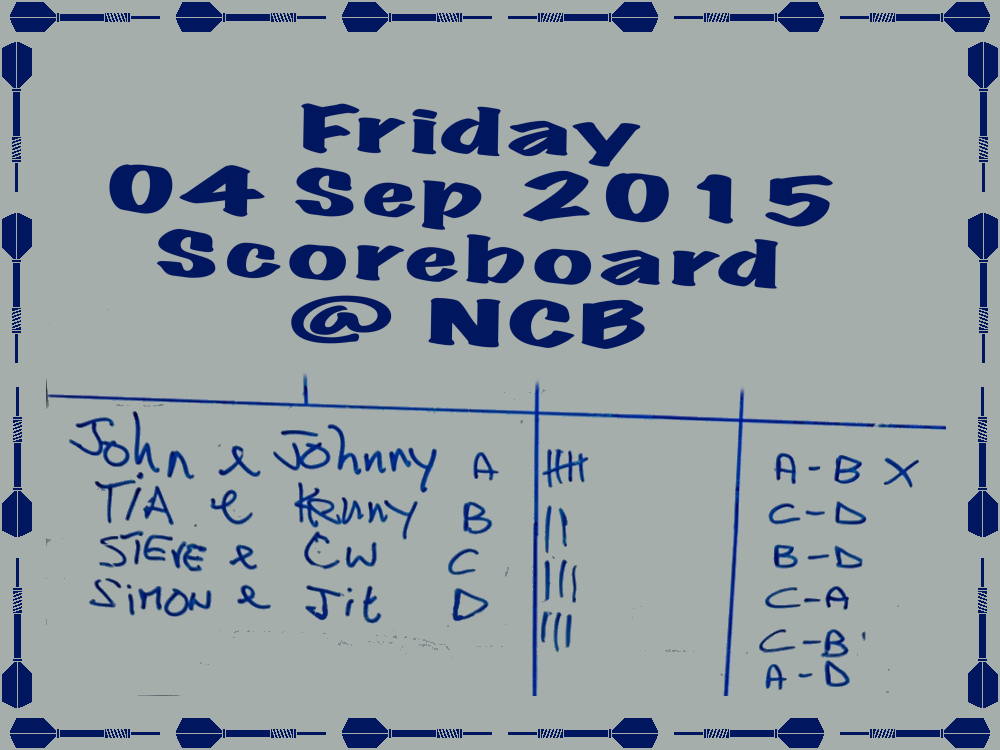 Friday
04 Sep 2015
Scoreboard
@ NCB
John & Johnny A 卌 A - B X
TIA & Kenny B || C - D
STEVE & CW C ||| B - D
SiMON & Jit D ||| C - A
C - B
A - D